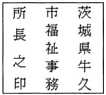 茨城県牛久
市福祉事務
所長之印